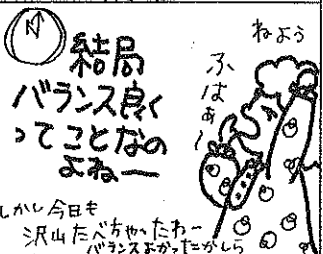 結局
バランス良く
ってことなの
よねー
ねよう
ふはぁ〜
しかし今日も
沢山たべちゃったわー
バランスよかったかしら